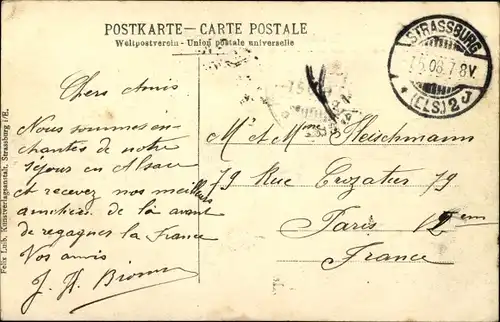 POSTKARTE — CARTE POSTALE
Weltpostverein - Union postale universelle
STRASSBURG
7-8V.
* (ELS) 2 J
Chers Amis
Nous sommes en-
chantés de notre
séjour en Alsace
et recevez nos meilleurs
amitiées de là avant
de regagner la France
Vos amis
J. H.
Mr et Mme Fleischmann
79 Rue Crozatier 79
Paris 12em
France
Felix Luib, Kunstverlagsanstalt, Strassburg i/E.